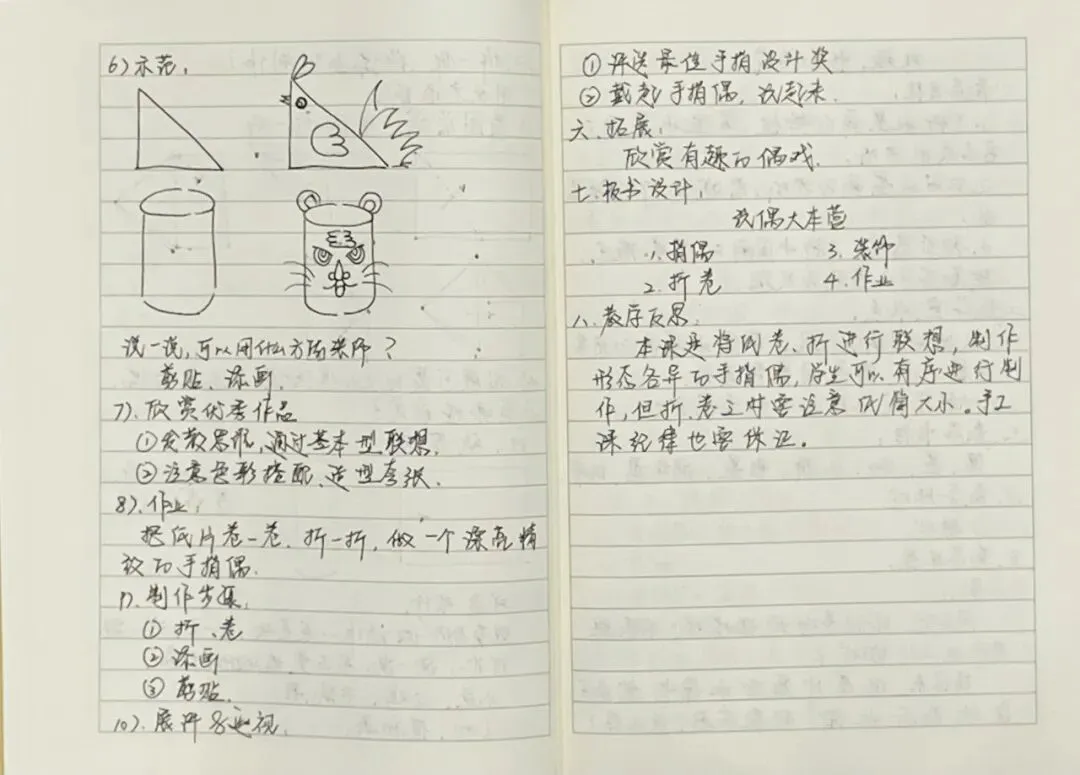 6)示范:
说一说,可以用什么方法装饰?
剪贴、涂画.
7).欣赏优秀作品
①发散思维,通过基本型联想.
②注意色彩搭配、造型夸张.
8).作业:
把纸片卷一卷、折一折,做一个漂亮精
致的手指偶.
9).制作步骤:
①折、卷
②涂画
③剪贴.
10).展评与巡视:
①评选最佳手指设计奖
②戴起手指偶,说起来.
六.拓展:
欣赏有趣的偶戏.
七.板书设计:
设偶大本营
1.指偶 3.装饰
2.折卷 4.作业
八.教学反思:
本课是将纸卷、折进行联想,制作
形态各异的手指偶,学生可以有序进行制
作,但折、卷之时要注意纸筒大小。手工
课纪律也要保证。